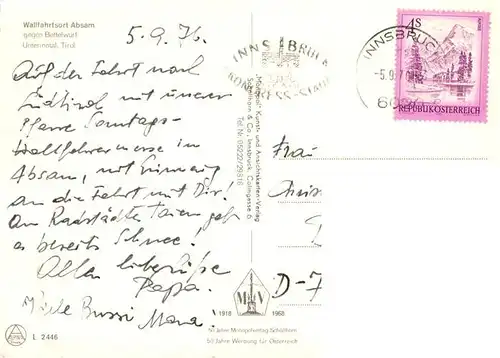 Wallfahrtsort Absam
gegen Bettelwurf
Unterinntal, Tirol
5.9.76.
Auf der Fahrt nach
Südtirol mit unserer
Pfarre Sonntags-
Wallfahrermesse in
Absam, mit Erinnerung
an die Fahrt mit Dir!
Am Radstädter Tauern gab
es bereits Schnee!
Alles liebe
Papa.
Viele Bussi Mama
L 2446
INNSBRUCK
KONGRESS-STADT
INNSBRUCK
-5.9.7
4S
REPUBLIK ÖSTERREICH
Kunst- und Ansichtskarten-Verlag
Schöllhorn & Co., Innsbruck,
Tel. Nr. 05222/29318
Frau
D-7
1918 MV 1968
50 Jahre Monopolverlag Schöllhorn
50 Jahre Werbung für Österreich